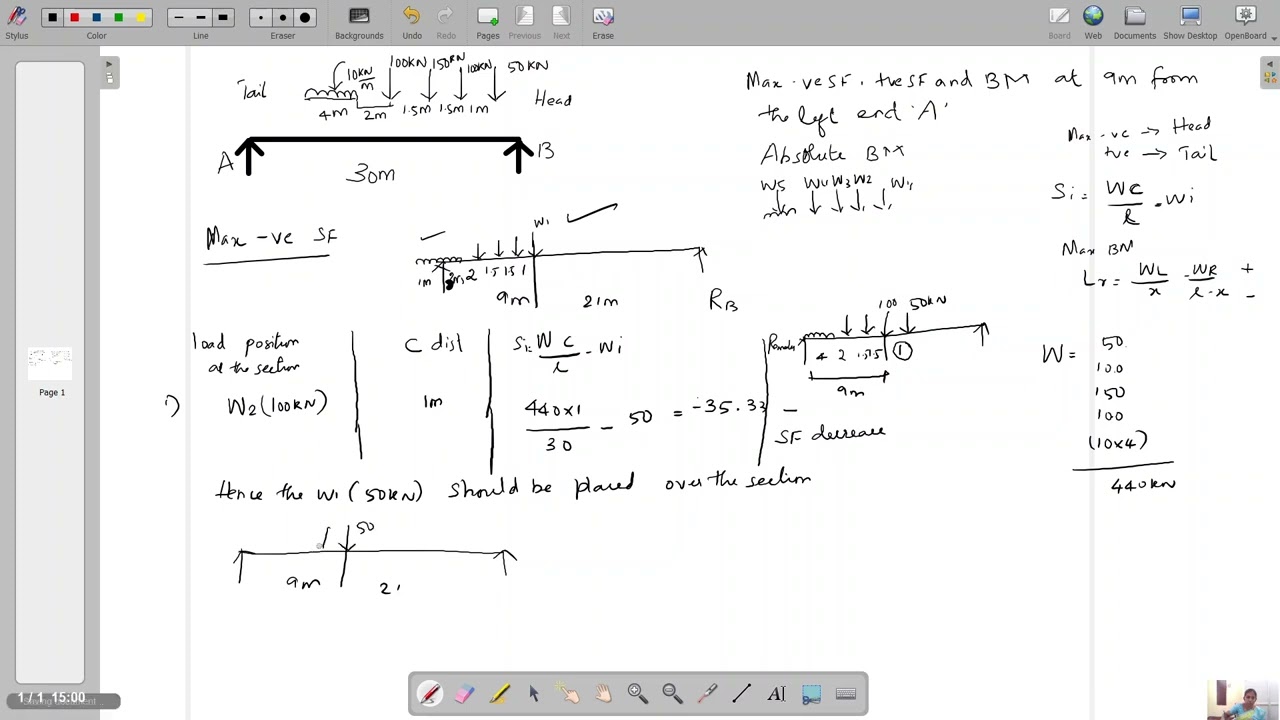 Stylus
Color
Line
Eraser
Backgrounds
Undo
Redo
Pages
Previous
Next
Erase
Board
Web
Documents
Show Desktop
OpenBoard
Tail
10kN/m
100kN
150kN
100kN
50kN
Head
4m 2m 1.5m 1.5m 1m
A
B
30m
Max -ve SF, +ve SF and BM at 9m from
the left end 'A'
Absolute BM
W5 W4 W3 W2 W1
Max -ve → Head
+ve → Tail
Si = WC/l - Wi
Max BM
Lr = WL/x - WR/l-x + -
Max -ve SF
W1
1m 2 1.5 1.5 1
9m
21m
RB
load position
at the section
C dist
Si = WC/l - Wi
100 50kN
4 2 1.5 1.5 1
9m
i) W2 (100kN)
1m
440x1/30 - 50 = -35.33 -
SF decrease
W =
50
100
150
100
(10x4)
440kN
Hence the W1 (50kN) should be placed over the section
50
9m
2
Page 1
1 / 1 15:00